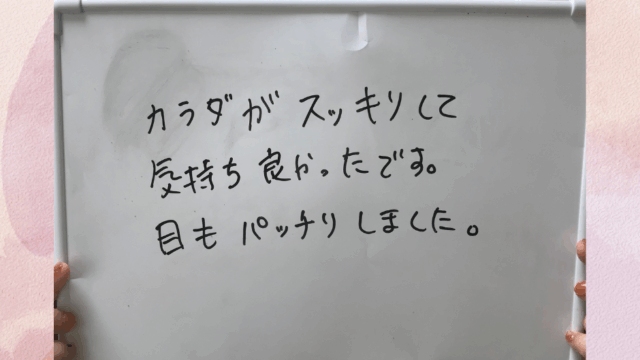 カラダがスッキリして
気持ち良かったです。
目もパッチリしました。